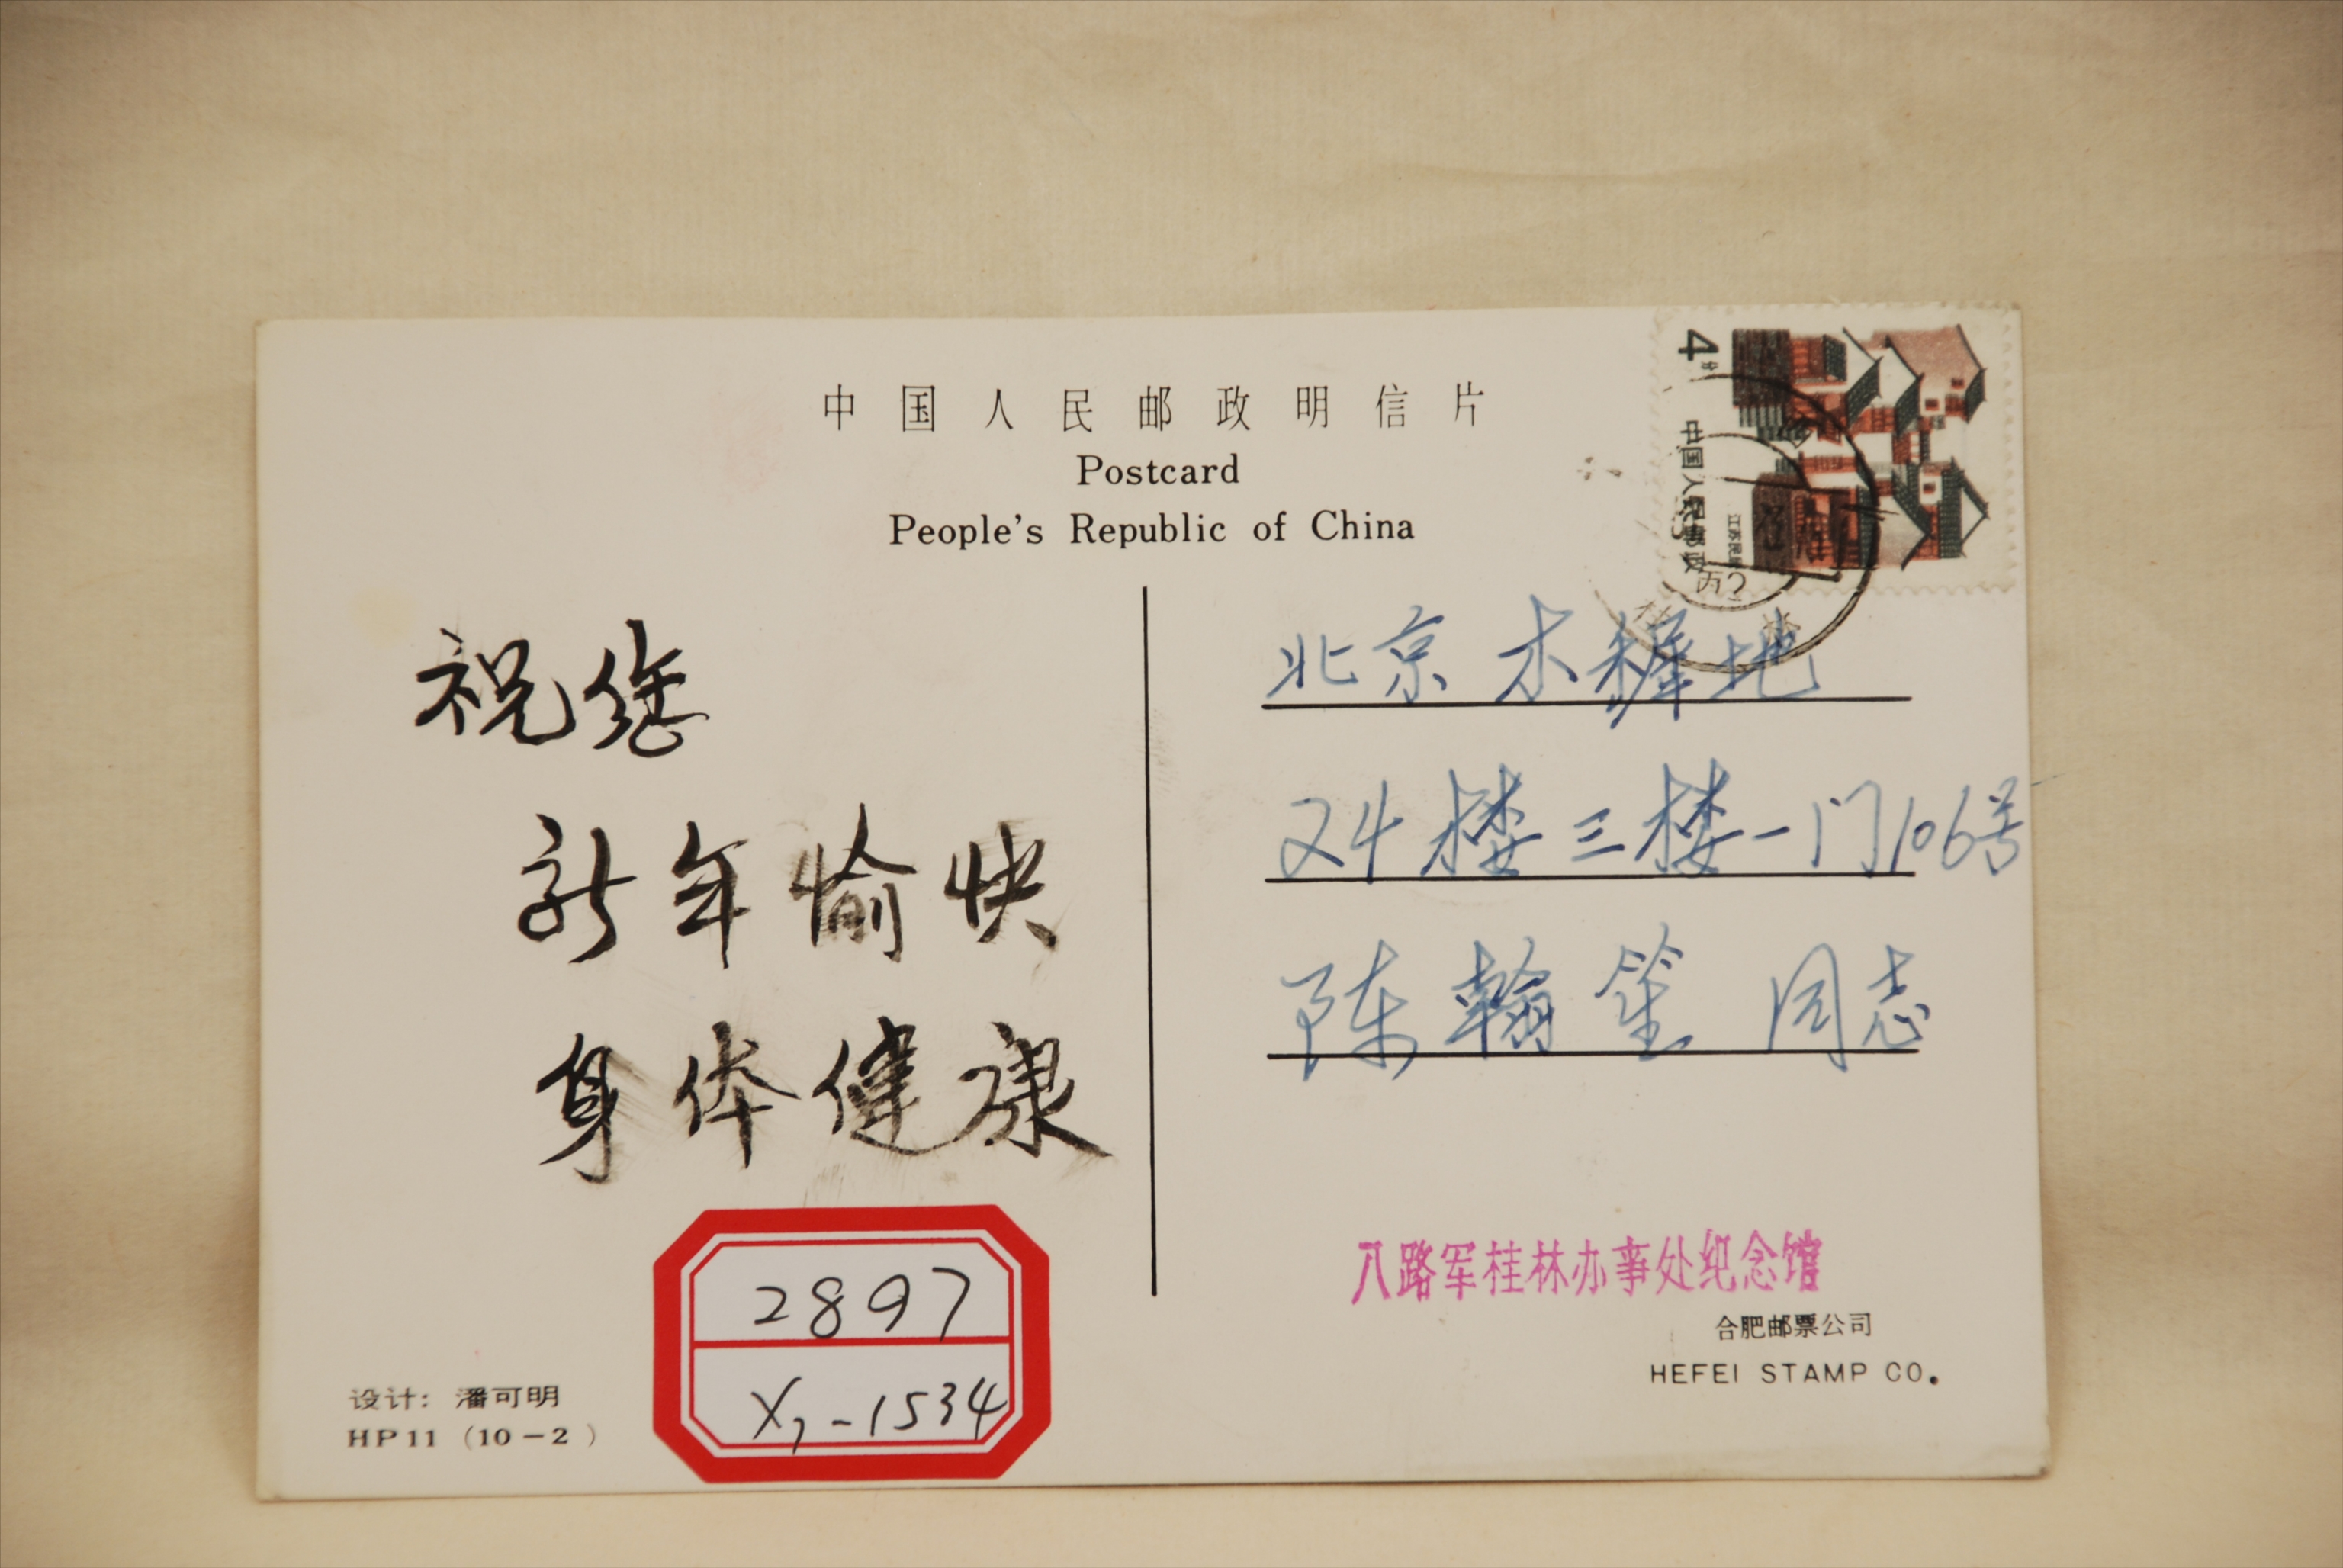 中国人民邮政明信片
Postcard
People's Republic of China
4分
中国人民邮政
江苏民居
祝您
新年愉快
身体健康
北京木樨地
24楼三楼一门106号
陈翰笙 同志
八路军桂林办事处纪念馆
合肥邮票公司
HEFEI STAMP CO.
2897
X1-1534
设计：潘可明
HP11 (10-2)